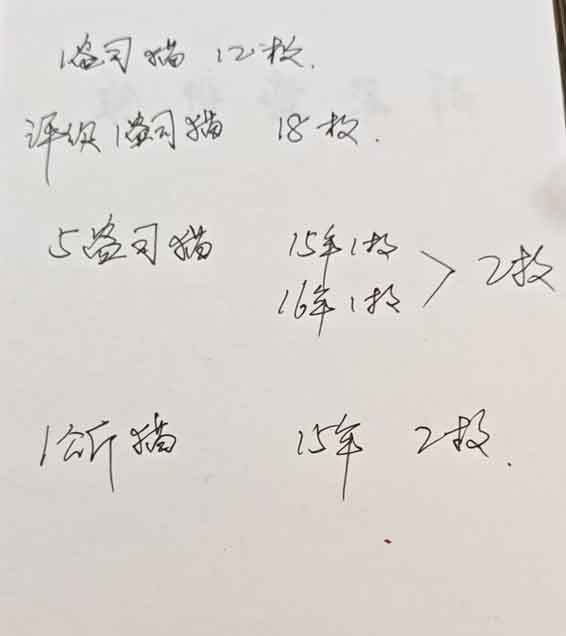 1盎司猫 12枚.
评级1盎司猫 18枚.
5盎司猫 15年1枚
16年1枚 > 2枚
1公斤猫 15年 2枚.